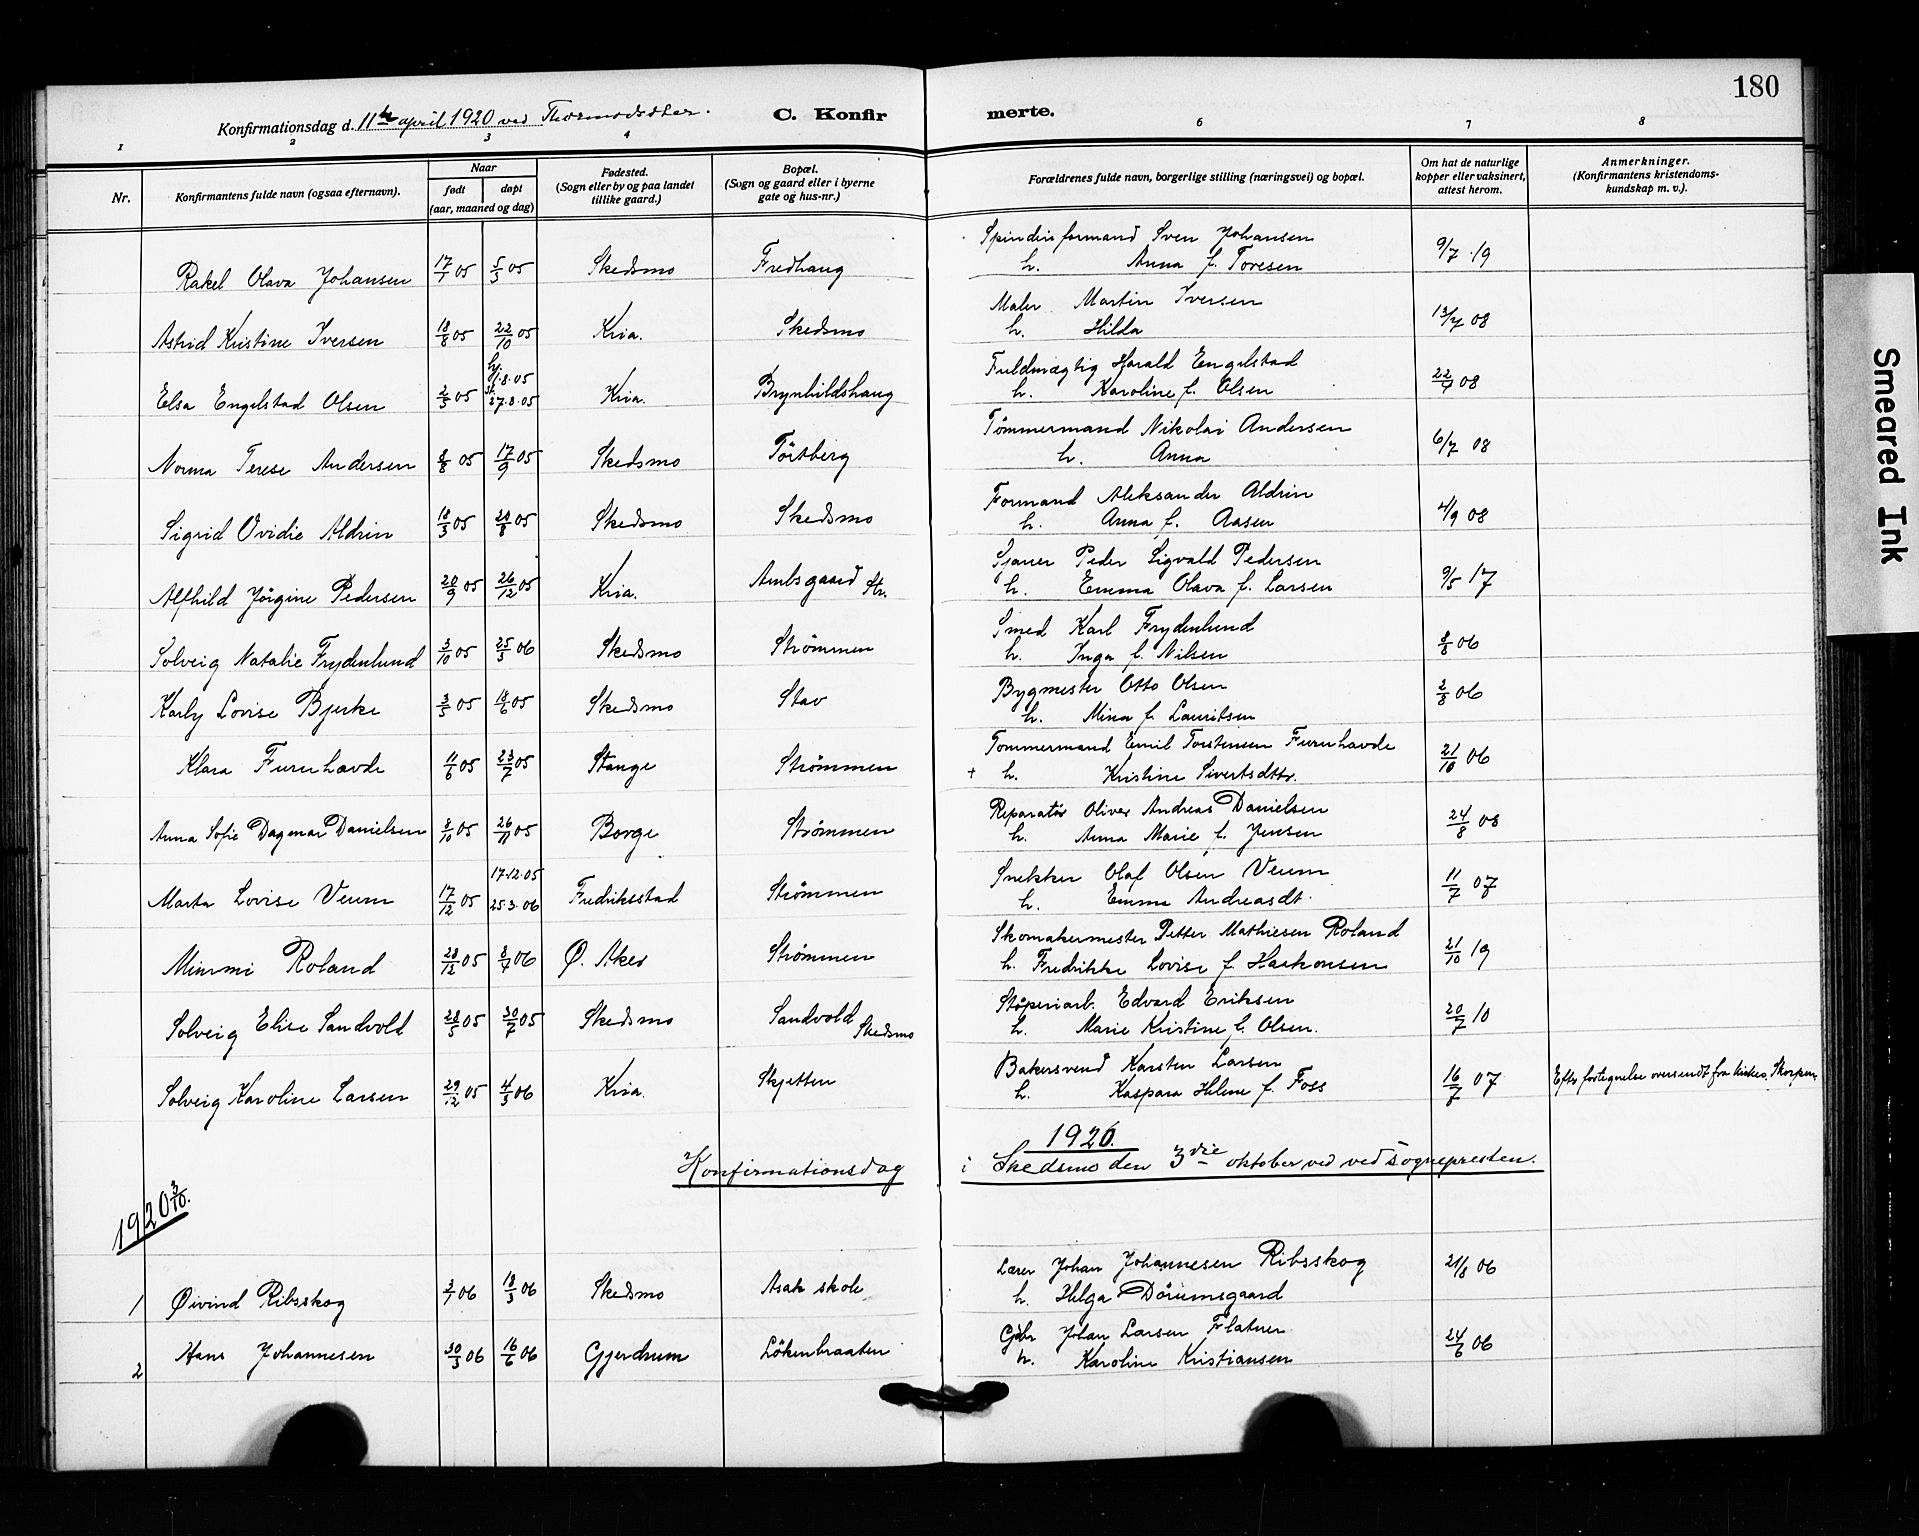 180
Konfirmationsdag d. 11te april 1920 ved Thormodsæter. C. Konfirmerte.
1 2 3 4 6 7 8
Nr. Konfirmantens fulde navn (ogsaa efternavn). Naar født døpt (aar, maaned og dag) Fødested. (Sogn eller by og paa landet tillike gaard.) Bopæl. (Sogn og gaard eller i byerne gate og hus-nr.) Forældrenes fulde navn, borgerlige stilling (næringsvei) og bopæl. Om hat de naturlige kopper eller vaksinert, attest herom. Anmerkninger. (Konfirmantens kristendomskundskap m. v.).
Rakel Olava Johansen 17/1 05 5/3 05 Skedsmo Fredhaug Spinderiformand Sven Johansen 9/7 19
h. Anna f. Toresen
Astrid Kristine Iversen 18/8 05 22/10 05 Kria. Skedsmo Maler Martin Iversen 13/7 08
h. Hilda
Elsa Engelstad Olsen 2/3 05 27.8.05 Kria. Brynhildshaug Fuldmægtig Harald Engelstad 22/9 08
h. Karoline f. Olsen
Norma Terese Andersen 8/8 05 17/9 05 Skedsmo Törtberg Tömmermand Nikolai Andersen 6/7 08
h. Anna
Sigrid Ovidie Aldrin 18/3 05 20/8 05 Skedsmo Skedsmo Formand Aleksander Aldrin 4/9 08
h. Anna f. Aasen
Alfhild Jörgine Pedersen 20/9 05 26/12 05 Kria. Amtsgaard Str. Sjauer Peder Sigvald Pedersen 9/5 17
h. Emma Olava f. Larsen
Solveig Natalie Frydenlund 3/10 05 25/3 06 Skedsmo Strömmen Smed Karl Frydenlund 8/8 06
h. Inga f. Nilsen
Karly Lovise Bjerke 3/5 05 18/6 05 Skedsmo Stav Bygmester Otto Olsen 3/8 06
h. Mina f. Lauritsen
Klara Furuhavde 11/6 05 23/7 05 Stange Strömmen Tommermand Emil Torstensen Furuhavde 21/10 06
+ h. Kristine Sivertsdtr.
Anna Sofie Dagmar Danielsen 8/10 05 26/11 05 Borge Strömmen Reparatør Oliver Andreas Danielsen 24/8 08
h. Anna Marie f. Jensen
Marta Lovise Veum 17/12 05 17.12.05 25.3.06 Fredriksstad Strömmen Snekker Olaf Olsen Veum 11/7 07
h. Emma Andreasdt.
Mimmi Roland 28/12 05 8/4 06 Ø. Aker Strömmen Skomakermester Petter Mathiesen Roland 21/10 19
h. Fredrikke Lovise f. Haakonsen
Solveig Elise Sandvold 28/5 05 30/7 05 Skedsmo Sandvold Skedsmo Støperiarb. Edvard Eriksen 20/7 10
h. Marie Kristine f. Olsen.
Solveig Karoline Larsen 29/12 05 4/3 06 Kria. Skjetten Bakersvend Karsten Larsen 16/8 07 Efter fortegnelse oversendt fra
h. Kaspara Helene f. Foss
1920.
Konfirmationsdag i Skedsmo den 3die oktober ved ved sognepresten.
1920 3/10.
1 Øivind Ribsskog 3/1 06 18/3 06 Skedsmo Asak skole Lærer Johan Johannesen Ribsskog 21/8 06
h. Helga Dörumsgaard
2 Hans Johannesen 30/3 06 16/6 06 Gjerdrum Lökenbraaten Gbr Johan Larsen Flatner 24/6 06
h. Karoline Kristiansen
Smeared Ink